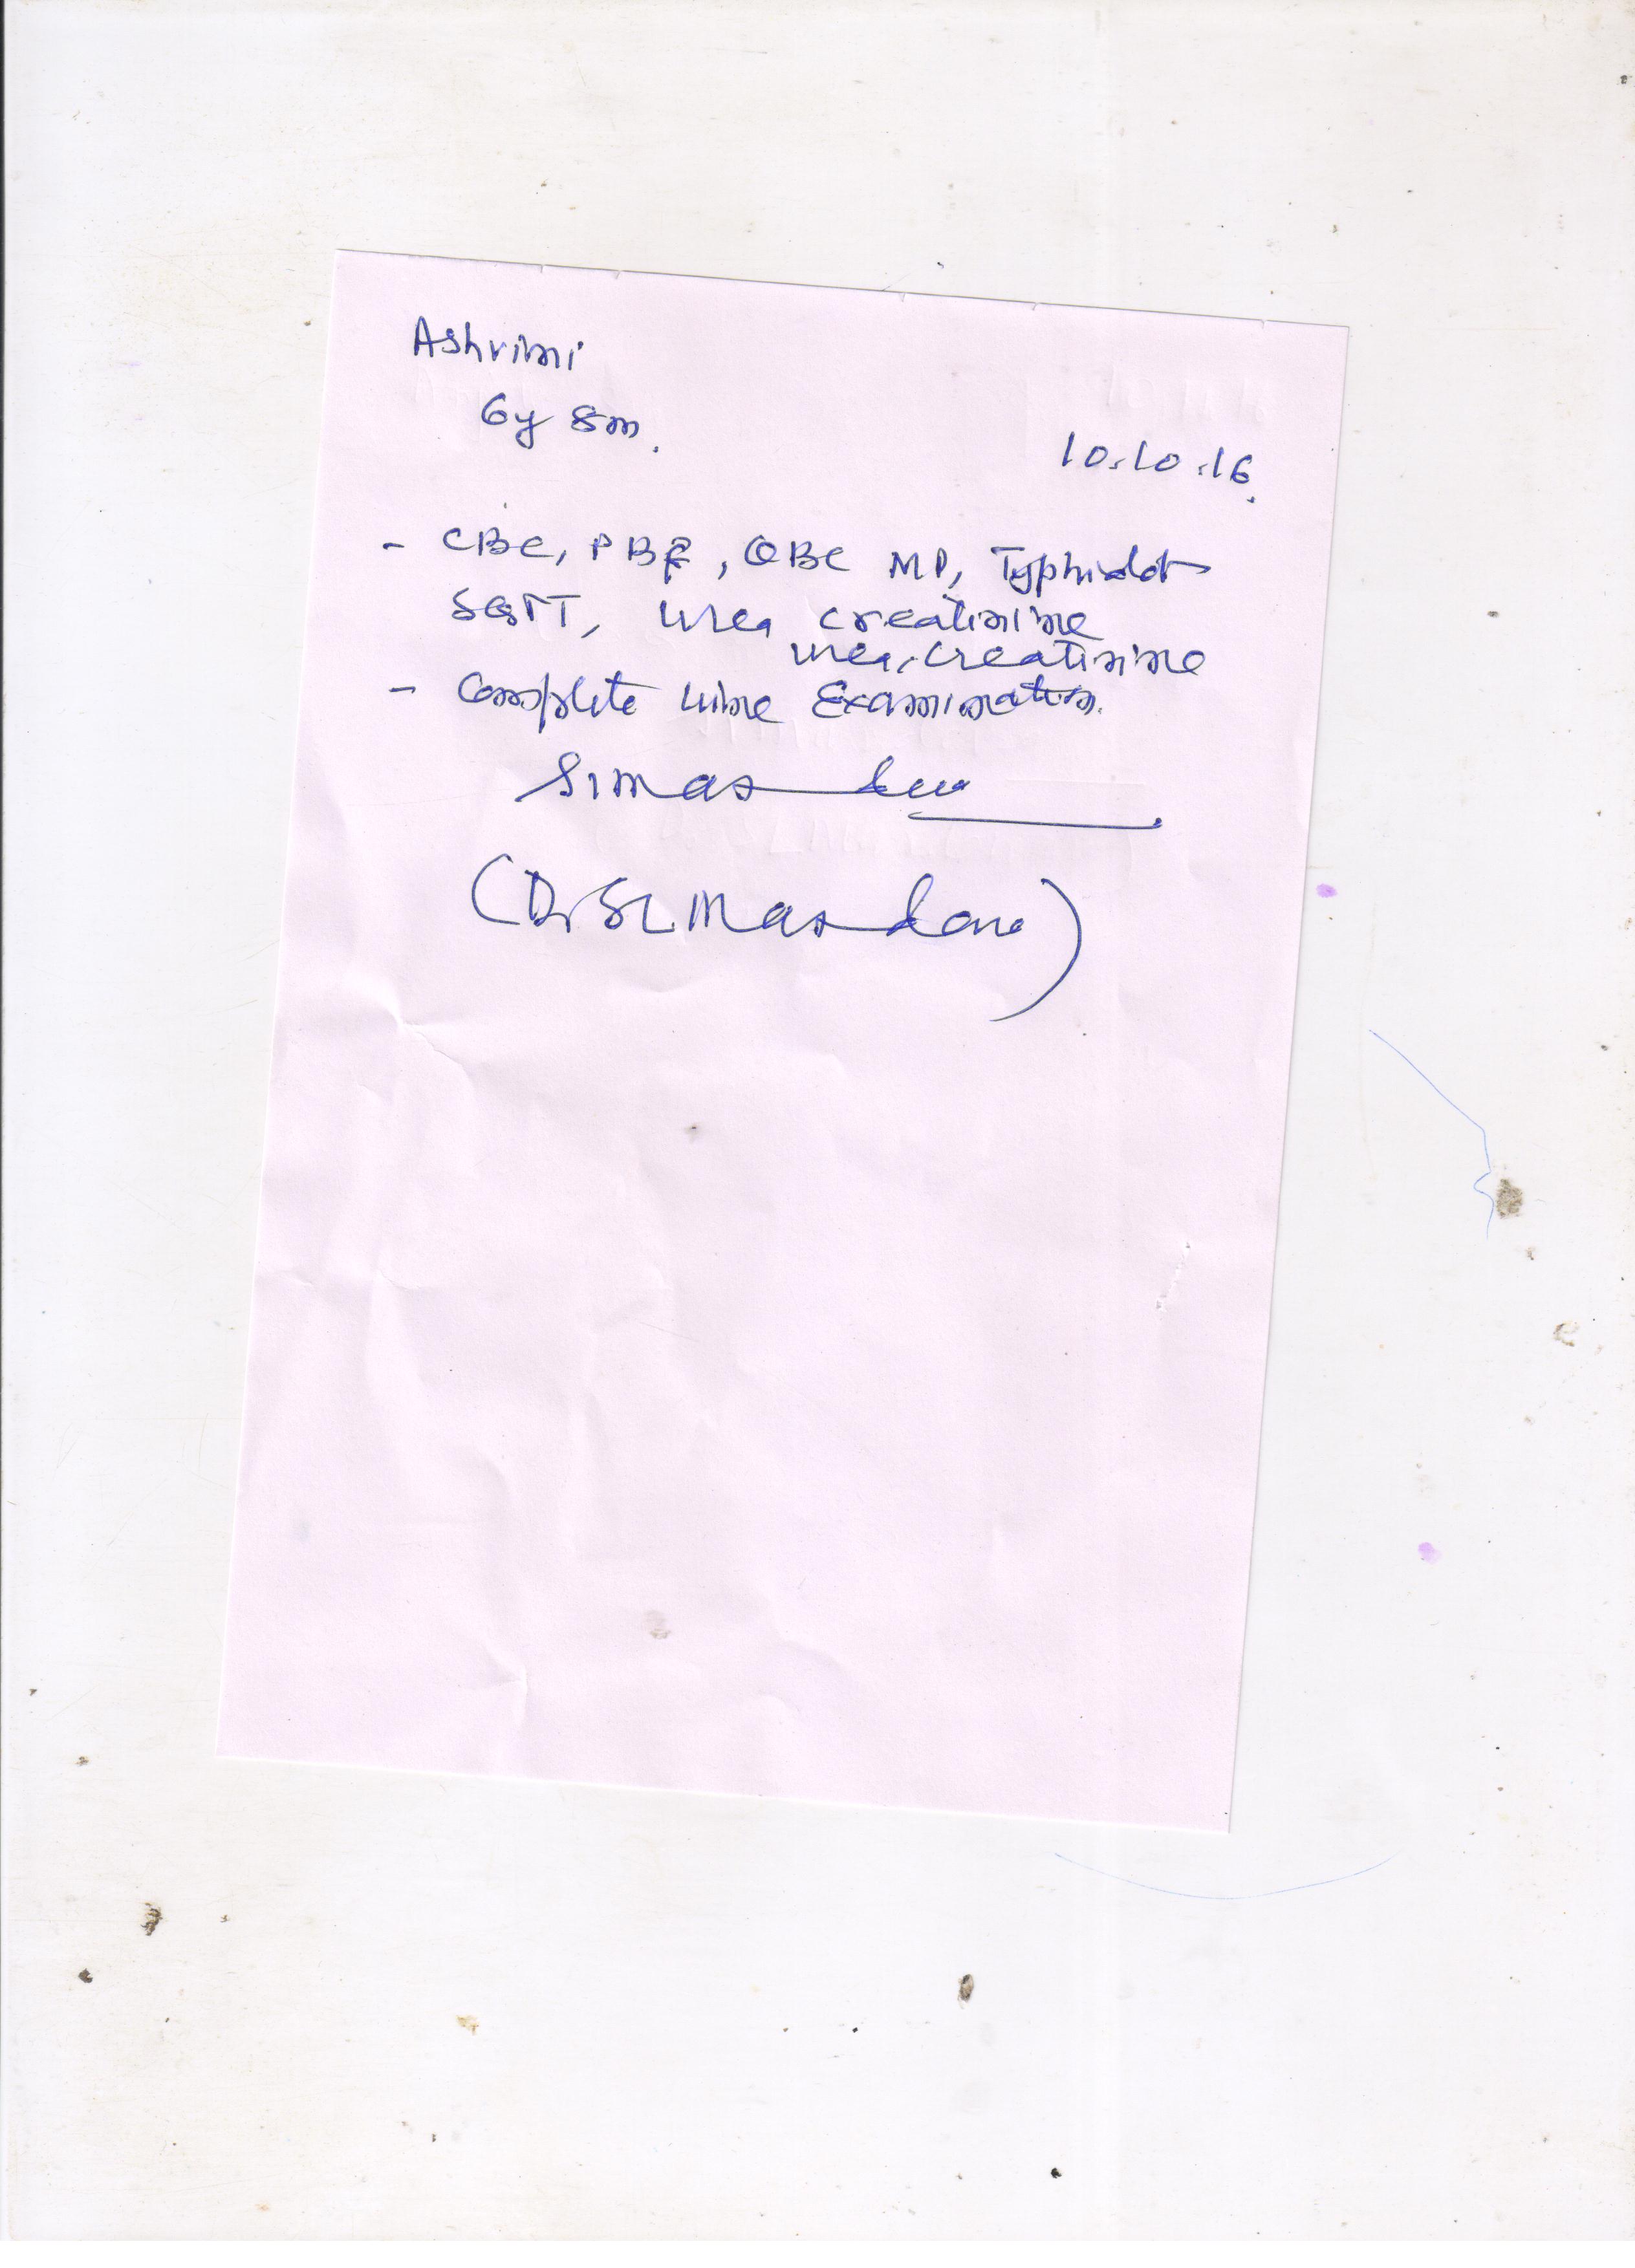 Ashrimi
6y 8m.
10.10.16.
- CBC, PBF, QBC MP, Typhidot
SGPT, Urea creatinine
urea, creatinine
- Complete urine Examination.